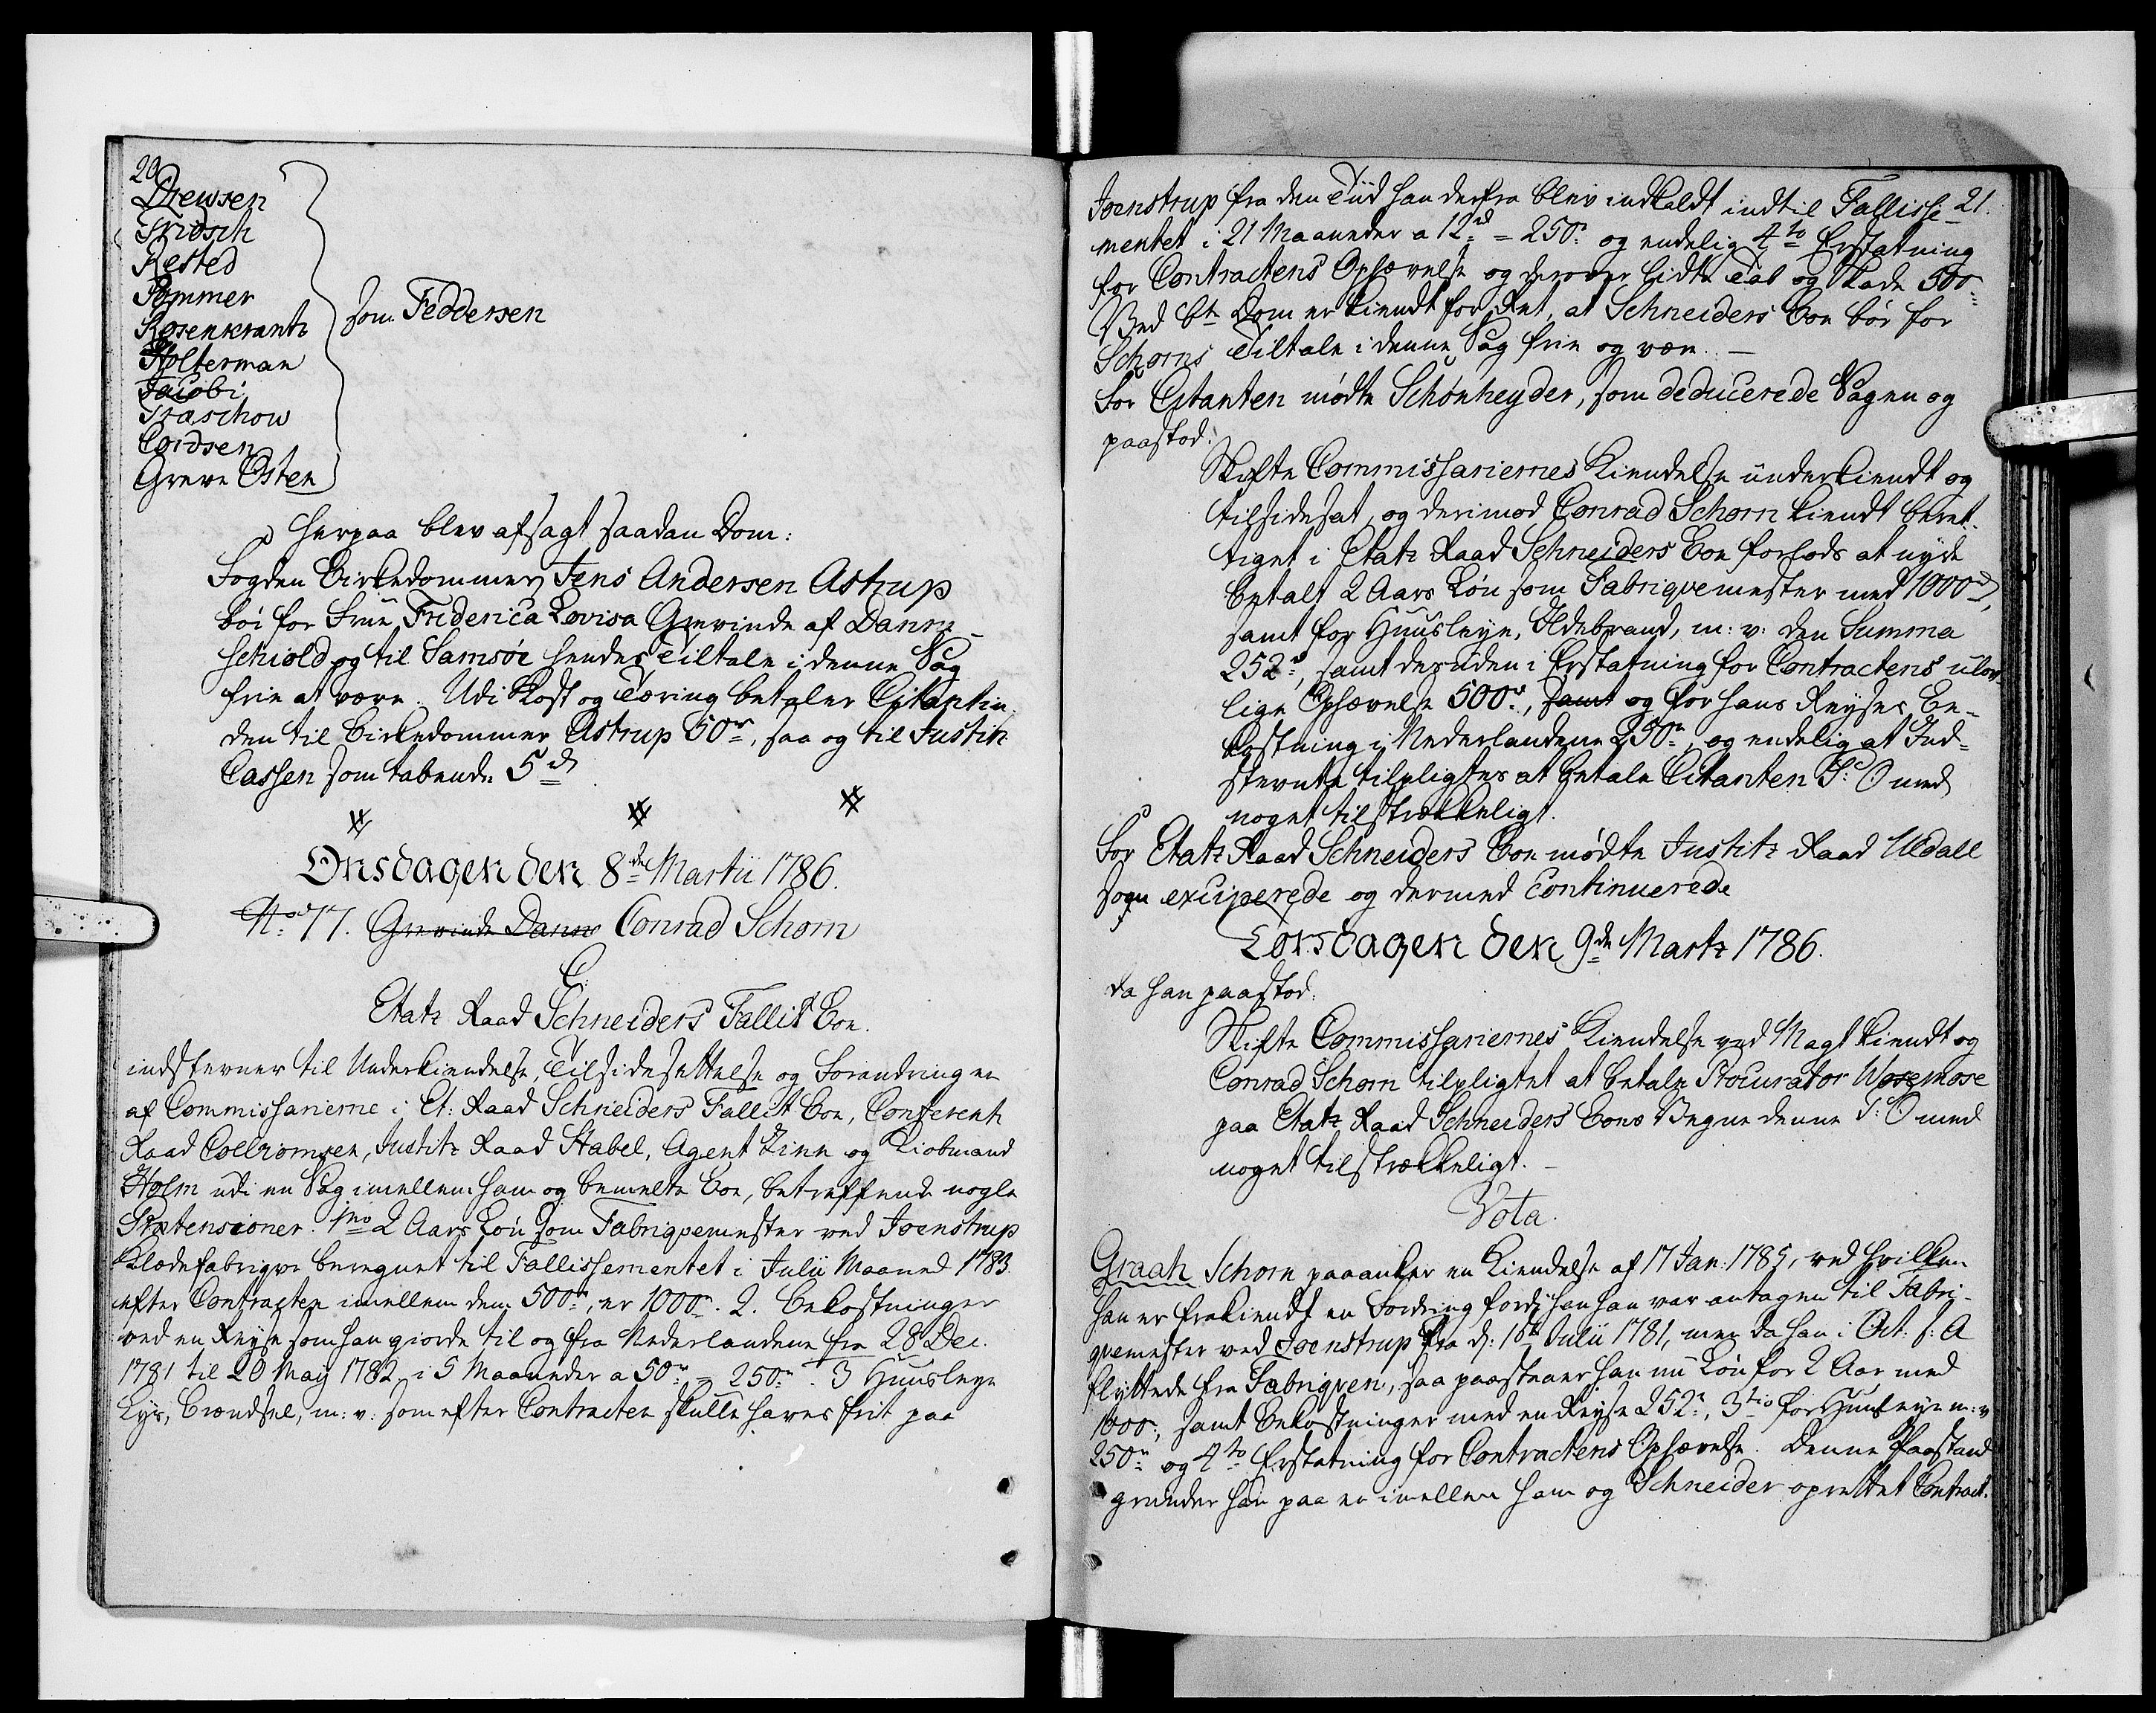 20
Drewsen
Fridsch
Rested
Pommer
Rosenkrantz
Holterman
Jacobi
Træschow
Cordsen
Greve Osten
som Feddersen
Herpaa blev afsagt saadan Dom:
Fogden Birkedommer Jens Andersen Astrup
bør for Frue Friderica Lovisa Grevinde af Danne-
schiold og til Samsøe hendes Tiltale i denne Sag
frie at være. Udi Kost og Tæring betaler Citantin-
den til Birkedommer Astrup 50 rd, saa og til Justitz
Cassen som tabende 5 rd
Onsdagen den 8de Martii 1786.
No 77. Grevinde Danne Conrad Schorn
C:
Etatz Raad Schneiders Fallit Boe.
indstevner til Underkiendelse, Tilsidesettelse og Forandring en
af Commissarierne i Et: Raad Schneiders Fallit Boe, Conferentz
Raad Collriomsen, Justitz Raad Stabel, Agent Zinn og Kiøbmand
Holm udi en Sag imellem ham og bemelte Boe, betreffende nogle
Prætensioner. 1mo 2 Aars Løn som Fabriqvemester ved Joenstrup
Klædefabriqve beregnet til Fallissementet i Julii Maaned 1783
efter Contracten imellem dem 500 rd, er 1000 rd. 2. Bekostninger
ved en Reyse som han giorde til og fra Nederlandene fra 28 Dec.
1781 til 20 May 1782, i 5 Maaneder a 50 rd = 250 rd. 3 Huusleye
Lys, Brændsel, m: v: som efter Contracten skulle haves frit paa
21.
Joenstrup fra den Tiid han derfra blev indkaldt indtil Fallisse-
mentet i 21 Maaneder a 12 rd = 250 rd og endelig 4to Erstatning
for Contractens Ophævelse og derover lidte Tab og Skade 500
Ved bte Dom er kiendt for Ret, at Schneiders Boe bør for
Schorns Tiltale i denne Sag frie og være. —
For Citanten mødte Schønheyder, som deducerede Sagen og
paastod:
Skifte Commissariernes Kiendelse underkiendt og
tilsidesat, og derimod Conrad Schorn kiendt beret-
tiget i Etatz Raad Schneiders Boe forlods at nyde
betalt 2 Aars Løn som Fabriqvemester med 1000 rd,
samt for Huusleye, Ildebrand, m: v: den Summa
252 rd, samt desuden i Erstatning for Contractens ulov-
lige Ophævelse 500 rd, samt og for hans Reyses Be-
kostning i Nederlandene 250 rd, og endelig at Ind-
stevnte tilpligtes at betale Citanten P: O med
noget tilstrækkeligt.
For Etatz Raad Schneiders Boe mødte Justitz Raad Uldall
som exciperede og dermed continuerede
Torsdagen den 9de Martz 1786.
da han paastod:
Skifte Commissariernes Kiendelse ved Magt kiendt og
Conrad Schorn tilpligtet at betale Procurator Wosemose
paa Etatz Raad Schneiders Boes Vegne denne P: O med
noget tilstrækkeligt. —
Vota.
Graah Schorn paaanker en Kiendelse af 17 Jan: 1785, ved hvilken
han er frakiendt en Fordring fordi han var antagen til Fabri-
qvemester ved Joenstrup fra d: 1ste Julii 1781, men da han i Oct: s: A
flyttede fra Fabriqven, saa paastaaer han nu Løn for 2 Aar med
1000 rd, samt Bekostninger med en Reyse 252 rd, 3tio for Huusleye m: v
250 rd og 4to Erstatning for Contractens Ophævelse. Denne Paastand
grunder han paa en imellem ham og Schneider oprettet Contract.